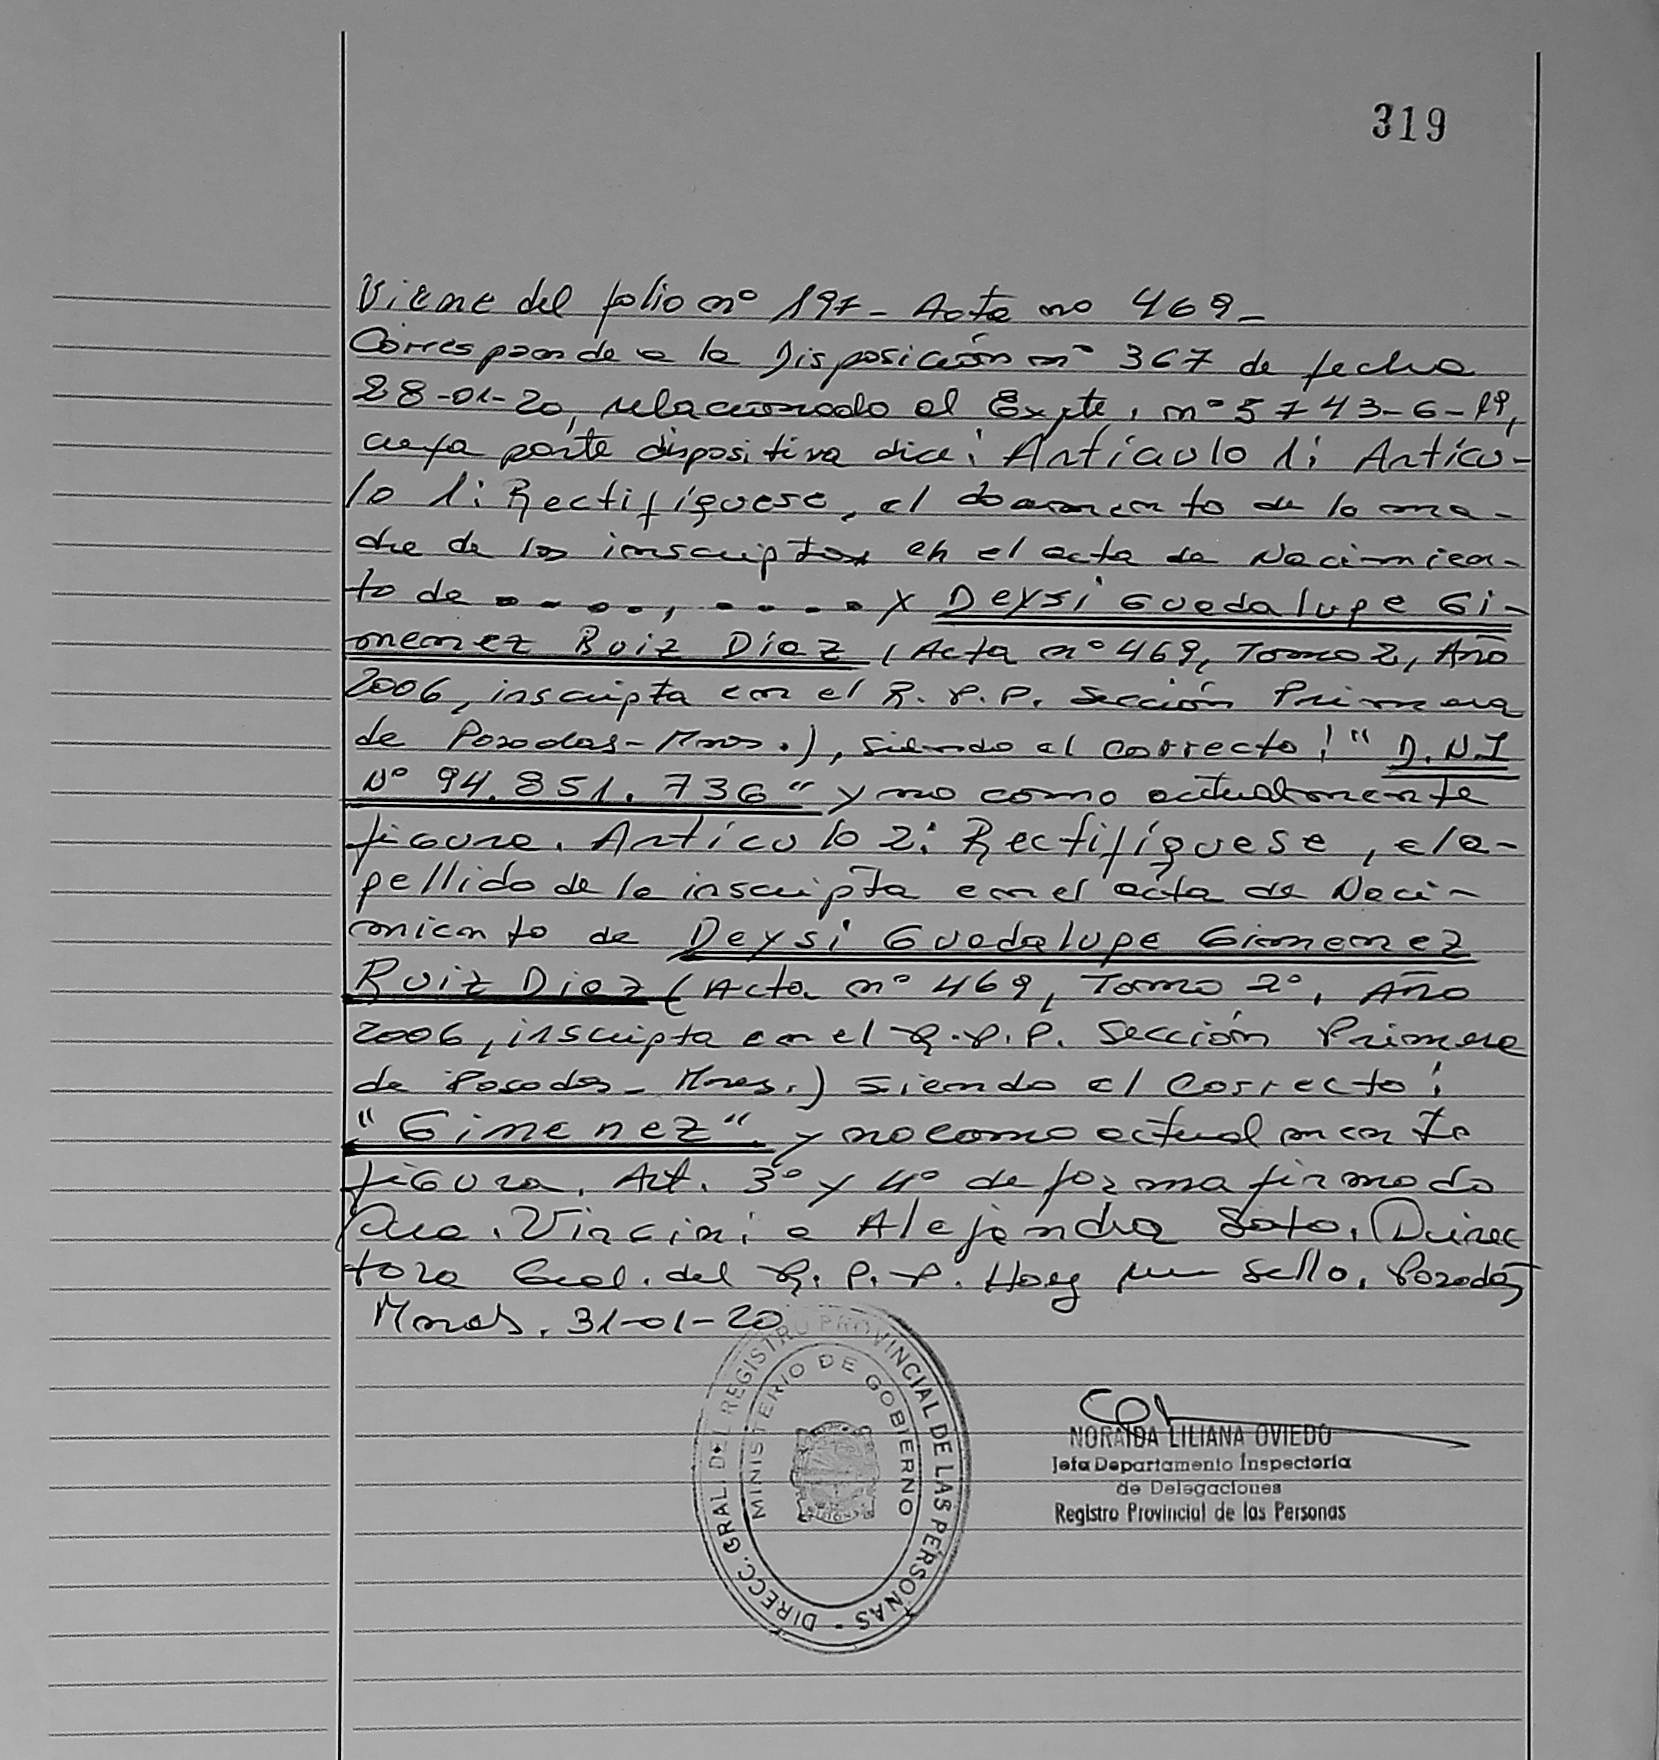 319
Viene del folio nº 197- Acta no 469-
Corresponde a la Disposición nº 367 de fecha
28-01-20, relacionado al Expte, nº 5743-G-19,
cuya parte dispositiva dice: Artículo 1: Artícu-
lo 1: Rectifíquese, el documento de la ma-
dre de los inscriptos en el acta de Nacimien-
to de - - - -, - - - - y Deysi Guadalupe Gi-
menez Ruiz Diaz (Acta nº 469, Tomo 2, Año
2006, inscripta en el R. P. P. Sección Primera
de Posadas-Mnes.), siendo el correcto: "D.N.I
Nº 94.851.736" y no como actualmente
figura. Artículo 2: Rectifíquese, el a-
pellido de la inscripta en el acta de Naci-
miento de Deysi Guadalupe Gimenez
Ruiz Diaz (Acta nº 469, Tomo 2º, Año
2006, inscripta en el R.P.P. Sección Primera
de Posadas- Mnes.) siendo el correcto:
"Gimenez" y no como actualmente
figura. Art. 3º y 4º de forma firmado
Alejandra Soto. Direc
tora Gral. del R. P. P. Hay un sello. Posadas
Mnes. 31-01-20
DIRECC. GRAL. DEL REGISTRO PROVINCIAL DE LAS PERSONAS -
MINISTERIO DE GOBIERNO
NORAIDA LILIANA OVIEDO
Jefa Departamento Inspectoría
de Delegaciones
Registro Provincial de las Personas